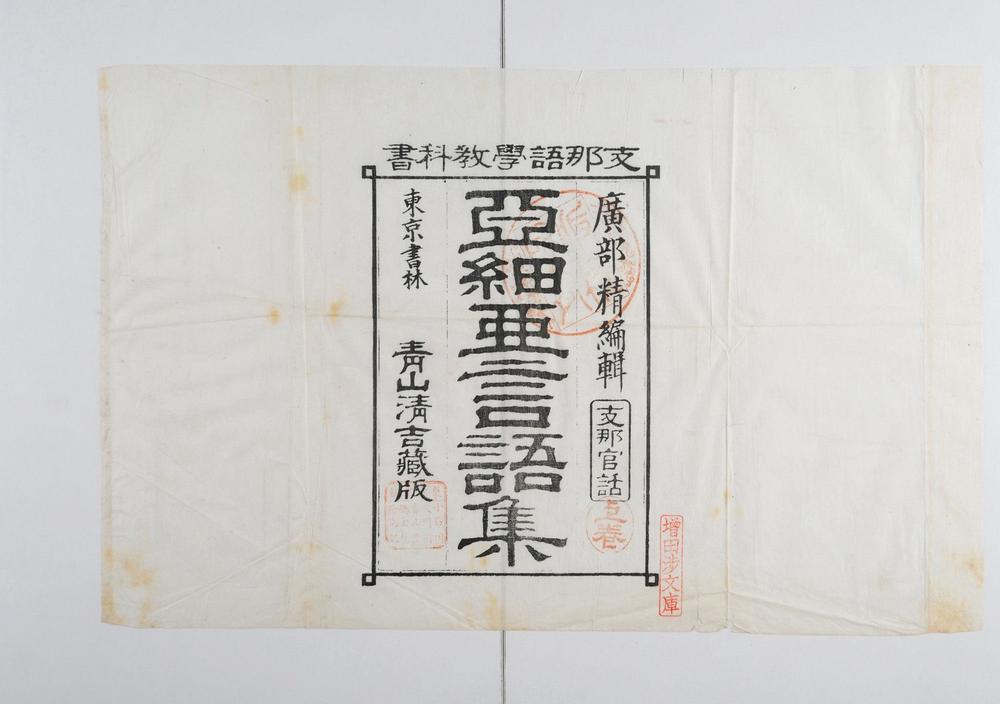 支那語學教科書
廣部精編輯
支那官話
上卷
亞細亞言語集
東京書林
青山淸吉藏版
增田涉文庫